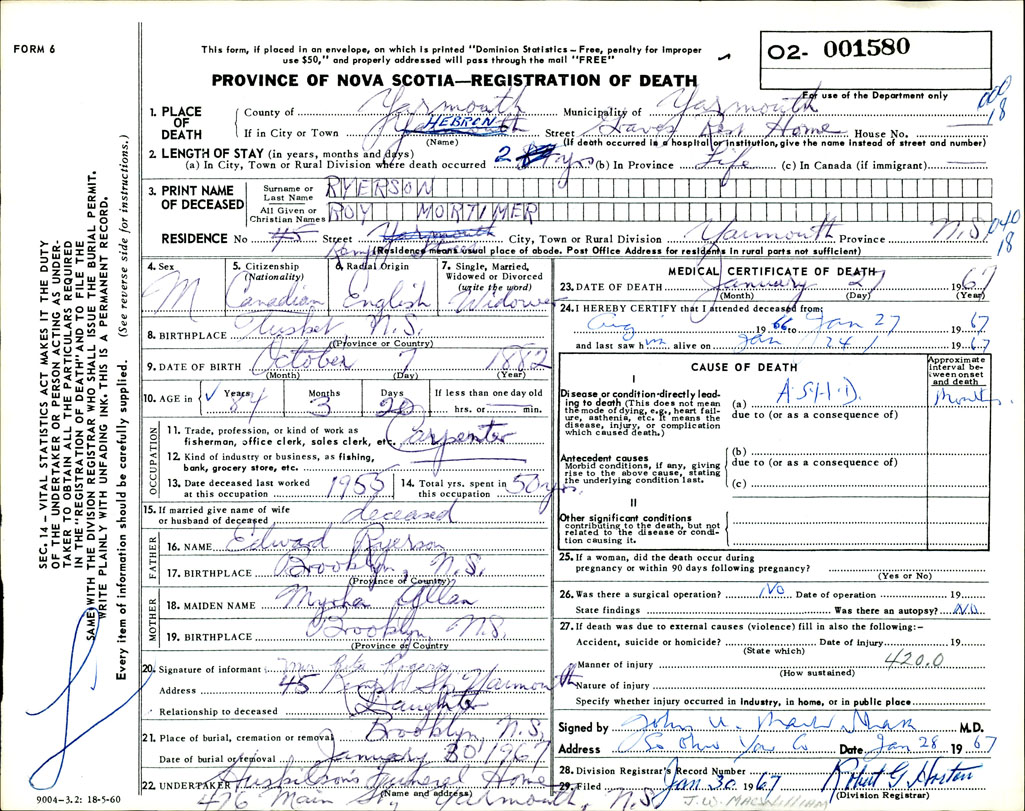 FORM 6
This form, if placed in an envelope, on which is printed "Dominion Statistics – Free, penalty for improper
use $50," and properly addressed will pass through the mail "FREE"
O2- 001580
PROVINCE OF NOVA SCOTIA—REGISTRATION OF DEATH
For use of the Department only
000
18
1. PLACE OF DEATH
County of Yarmouth Municipality of Yarmouth
If in City or Town HEBRON Street Rest Home House No.
(Name) (If death occurred in a hospital or institution, give the name instead of street and number)
2. LENGTH OF STAY (in years, months and days)
(a) In City, Town or Rural Division where death occurred 2 yrs (b) In Province Life (c) In Canada (if immigrant)
3. PRINT NAME OF DECEASED
Surname or Last Name RYERSON
All Given or Christian Names ROY MORTIMER
RESIDENCE No 45 Street Yarmouth City, Town or Rural Division Yarmouth Province N.S.
040
18
(Residence means usual place of abode. Post Office Address for residents in rural parts not sufficient)
4. Sex M
5. Citizenship (Nationality) Canadian
6. Racial Origin English
7. Single, Married, Widowed or Divorced (write the word) Widower
8. BIRTHPLACE Tusket N.S.
(Province or Country)
9. DATE OF BIRTH October 7 1882
(Month) (Day) (Year)
10. AGE in Years 84 Months 3 Days 20 If less than one day old hrs. or min.
OCCUPATION
11. Trade, profession, or kind of work as fisherman, office clerk, sales clerk, etc. Carpenter
12. Kind of industry or business, as fishing, bank, grocery store, etc.
13. Date deceased last worked at this occupation 1955
14. Total yrs. spent in this occupation 50 yrs.
15. If married give name of wife or husband of deceased deceased
FATHER
16. NAME Edward Ryerson
17. BIRTHPLACE Brooklyn, N.S.
(Province or Country)
MOTHER
18. MAIDEN NAME Allan
19. BIRTHPLACE Brooklyn, N.S.
(Province or Country)
20. Signature of informant Mrs. Rita Rogers
Address 45 Kempt St. Yarmouth
Relationship to deceased Daughter
21. Place of burial, cremation or removal Brooklyn, N.S.
Date of burial or removal January 30 1967
22. UNDERTAKER Huskilson's Funeral Home
(Name and address)
426 Main St., Yarmouth, N.S.
9004–3.2: 18-5-60
MEDICAL CERTIFICATE OF DEATH
23. DATE OF DEATH January 27 1967
(Month) (Day) (Year)
24. I HEREBY CERTIFY that I attended deceased from:
Aug 1966 to Jan 27 1967
and last saw him alive on Jan 24 1967
CAUSE OF DEATH
Approximate interval between onset and death
I
Disease or condition directly leading to death (This does not mean the mode of dying, e.g., heart failure, asthenia, etc. It means the disease, injury, or complication which caused death.)
(a) A.S.H.D. Months
due to (or as a consequence of)
Antecedent causes
Morbid conditions, if any, giving rise to the above cause, stating the underlying condition last.
(b)
due to (or as a consequence of)
(c)
II
Other significant conditions contributing to the death, but not related to the disease or condition causing it.
25. If a woman, did the death occur during
pregnancy or within 90 days following pregnancy?
(Yes or No)
26. Was there a surgical operation? No Date of operation 19
State findings Was there an autopsy? No
27. If death was due to external causes (violence) fill in also the following:–
Accident, suicide or homicide? Date of injury 19
(State which)
Manner of injury 420.0
(How sustained)
Nature of injury
Specify whether injury occurred in industry, in home, or in public place
Signed by John M.D.
Address So Ohio Yar Co Date Jan 28 1967
28. Division Registrar's Record Number
29. Filed Jan 30 1967 Robert G Horton
(Division Registrar)
J.W. MACWILLIAM
SEC. 14 – VITAL STATISTICS ACT MAKES IT THE DUTY
OF THE UNDERTAKER OR PERSON ACTING AS UNDER-
TAKER TO OBTAIN ALL THE PARTICULARS REQUIRED
IN THE "REGISTRATION OF DEATH" AND TO FILE THE
SAME WITH THE DIVISION REGISTRAR WHO SHALL ISSUE THE BURIAL PERMIT.
WRITE PLAINLY WITH UNFADING INK. THIS IS A PERMANENT RECORD.
Every item of information should be carefully supplied. (See reverse side for instructions.)